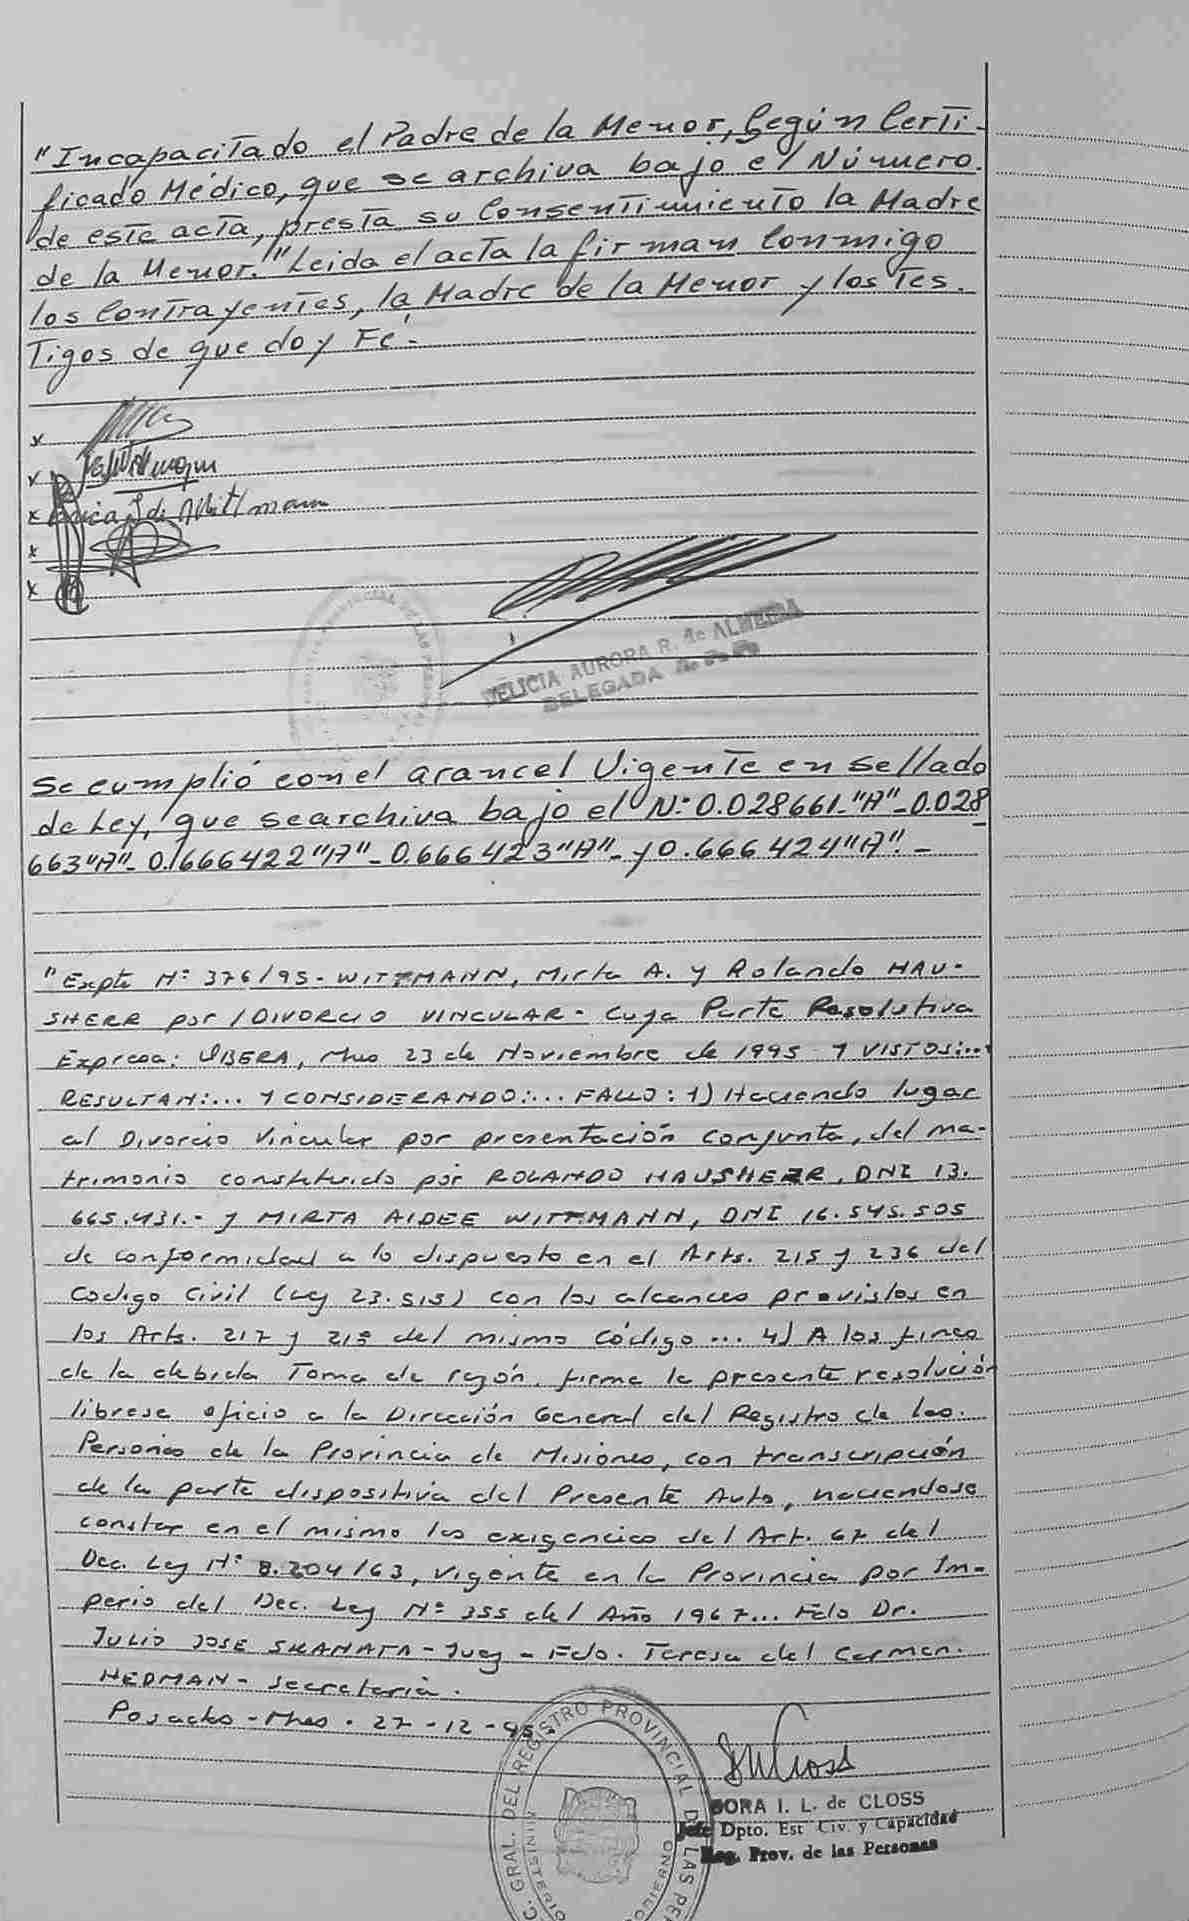 "Incapacitado el Padre de la Menor, Según Certi-
ficado Médico, que se archiva bajo el Número.
de este acta, presta su Consentimiento la Madre
de la Menor." Leida el acta la firman Conmigo
los Contrayentes, la Madre de la Menor y los Tes.
Tigos de que doy Fé.-
x
x
x de Wittmann
x
x
FELICIA AURORA R. de ALMEIDA
DELEGADA
Se cumplió con el arancel Vigente en Sellado
de Ley, que se archiva bajo el N:0.028661-"A"-0.028
663"A"-0.666422"A"-0.666423"A"-y 0.666424"A".-
"Expte Nº 376/95-WITTMANN, Mirta A. y Rolando HAU-
SHERR por/DIVORCIO VINCULAR- Cuya Parte Resolutiva
Expresa: OBERA, Mnes 23 de Noviembre de 1995 Y VISTOS:...
RESULTAN:... Y CONSIDERANDO:... FALLO: 1) Haciendo lugar
al Divorcio Vincular por presentación conjunta, del ma-
trimonio constituido por ROLANDO HAUSHERR, DNI 13.
665.431.- y MIRTA AIDEE WITTMANN, DNI 16.545.505
de conformidad a lo dispuesto en el Arts. 215 y 236 del
Codigo Civil (Ley 23.515) con los alcances previstos en
los Arts. 217 y 218 del mismo Código ... 4) A los fines
de la debida Toma de razón, firme la presente resolución
librese oficio a la Dirección General del Registro de las.
Personas de la Provincia de Misiones, con transcripción
de la parte dispositiva del Presente Auto, haciendose
constar en el mismo las exigencias del Art. 67 del
Dec. Ley Nº 8.204/63, vigente en la Provincia por Im-
perio del Dec. Ley Nº 355 del Año 1967... Fdo Dr.
JULIO JOSE SKANATA-Juez - Fdo. Teresa del Carmen.
HEDMAN- Secretaria.
Posadas-Mnes. 27-12-95.
C. GRAL. DEL REGISTRO PROVINCIAL DE LAS PER
MINISTERIO GOBIERNO
DORA I. L. de CLOSS
Jefe Dpto. Est Civ. y Capacidad
Reg. Prov. de las Personas